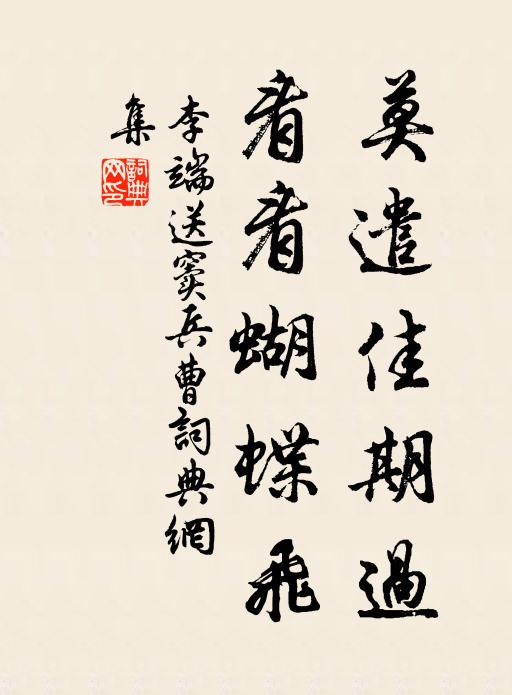 莫遣佳期過
看看蝴蝶飛
李端送竇兵曹詞典網
集
詞典
网印